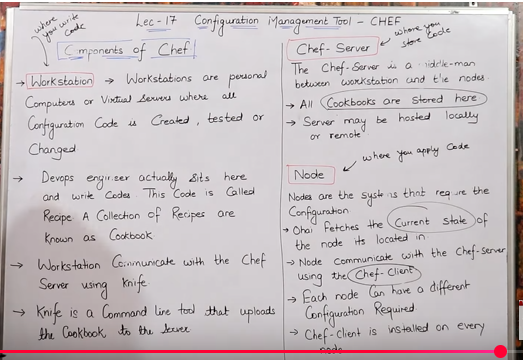 Lec-17 Configuration Management Tool - CHEF
where
you write
code
Components of Chef
→ Workstation → Workstations are personal
Computers or Virtual Servers where all
Configuration Code is Created, tested or
Changed
→ Devops engineer actually sits here
and write Codes. This Code is Called
Recipe A Collection of Recipes are
known as Cookbook
→ Workstation Communicate with the Chef
Server using Knife
→ Knife is a Command line tool that uploads
the Cookbook to the Server
Chef-Server
where you
store Code
The Chef-Server is a middle-man
between workstation and the nodes
→ All Cookbooks are Stored here
→ Server may be hosted locally
or remote
where you apply Code
Node
Nodes are the systems that require the
Configuration
→ Ohai fetches the Current State of
the node its located in
→ Node communicate with the Chef-Server
using the Chef-Client
→ Each node Can have a different
Configuration Required
→ Chef-client is installed on every
node